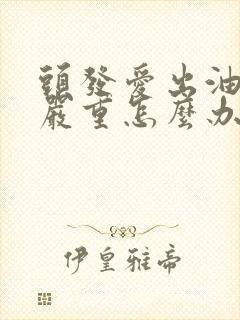 頭發愛出油
嚴重怎麼办
伊皇雅帝